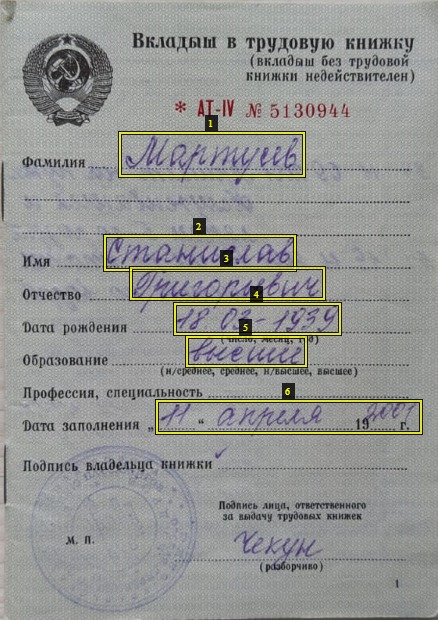 Вкладыш в трудовую книжку
(вкладыш без трудовой
книжки недействителен)
* АТ-IV № 5130944
1
Фамилия Мартусев
2
Имя Станислав
3
Отчество Григорьевич
4
Дата рождения 18 03-1939
5
(число, месяц, год)
Образование высшее
(н/среднее, среднее, н/высшее, высшее)
6
Профессия, специальность
Дата заполнения „11“ апреля 19 2001 г.
Подпись владельца книжки
Подпись лица, ответственного
за выдачу трудовых книжек
М. П.
Чекун
(разборчиво)
1